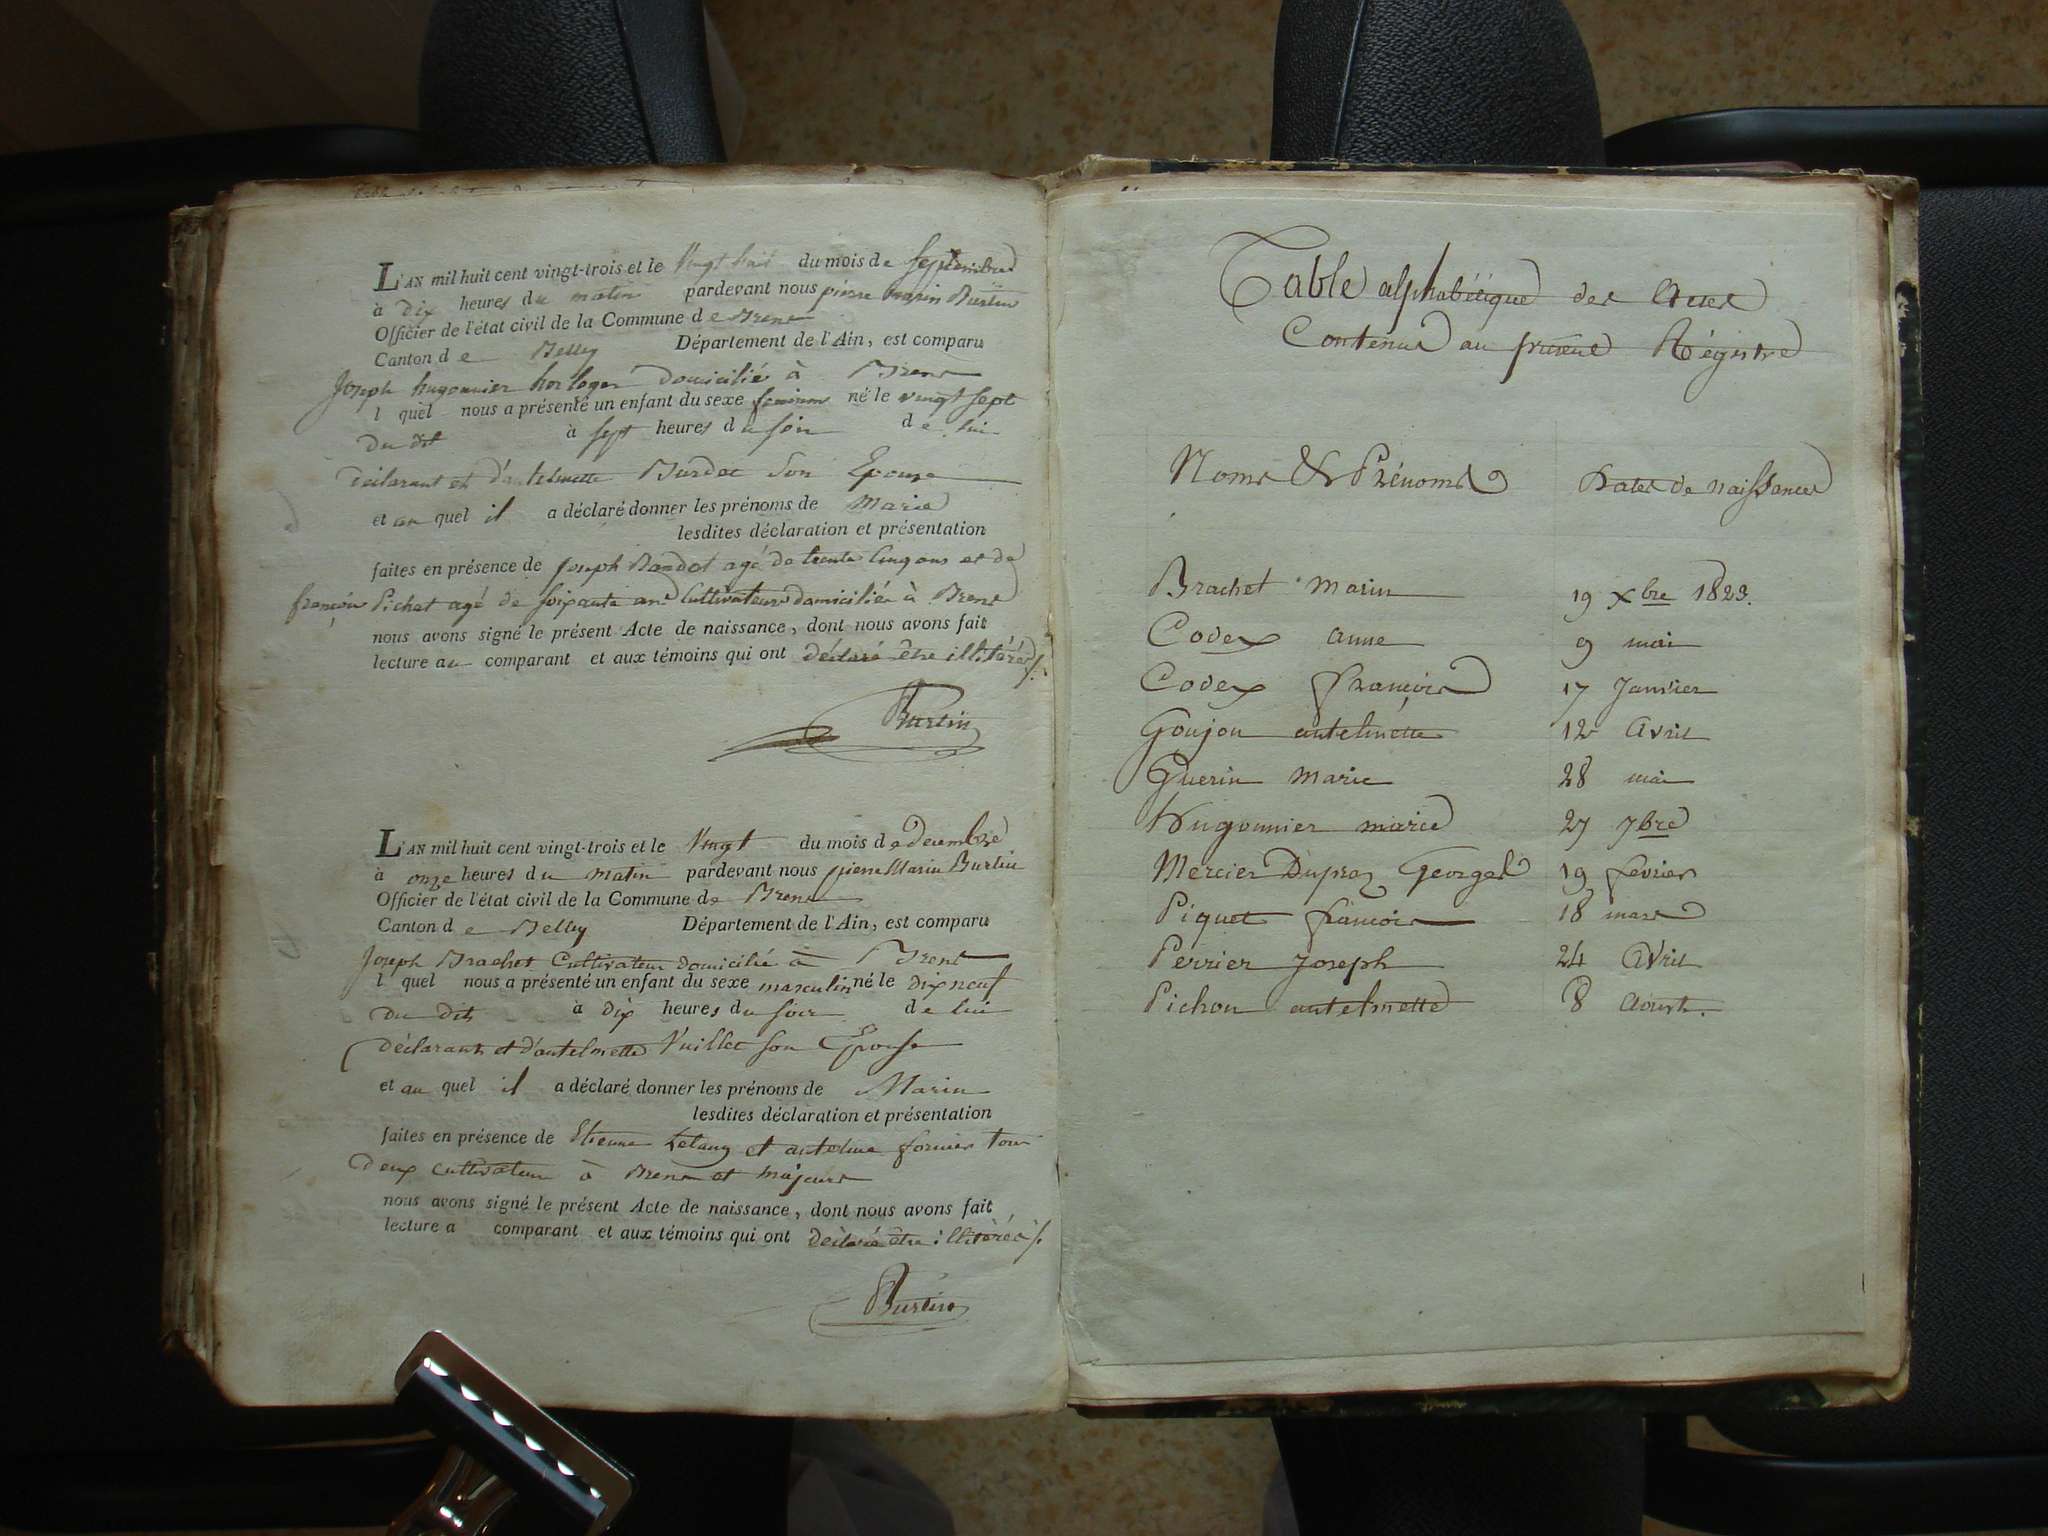 L'AN mil huit cent vingt-trois et le Vingt huit du mois de Septembre
à dix heures du matin pardevant nous pierre marin Burtin
Officier de l'état civil de la Commune de Brens
Canton de Belley Département de l'Ain, est comparu
Joseph hugonnier horloger domicilié à Brens
l quel nous a présenté un enfant du sexe feminin né le vingt sept
du dit à sept heures du soir de lui
déclarant et d'antelmette Burdet son Epouse
et au quel il a déclaré donner les prénoms de Marie
lesdites déclaration et présentation
faites en présence de Joseph Bandot agé de trente cinq ans et de
françois Pichat agé de soixante ans Cultivateurs domiciliés à Brens
nous avons signé le présent Acte de naissance, dont nous avons fait
lecture au comparant et aux témoins qui ont déclaré être illitérés
Burtin
L'AN mil huit cent vingt-trois et le Vingt du mois de decembre
à onze heures du matin pardevant nous pierre Marin Burtin
Officier de l'état civil de la Commune de Brens
Canton de Belley Département de l'Ain, est comparu
Joseph Brachet Cultivateur domicilié à Brens
l quel nous a présenté un enfant du sexe masculin né le dix neuf
du dit à dix heures du soir de lui
déclarant et d'antelmette Vuillet son Epouse
et au quel il a déclaré donner les prénoms de Marin
lesdites déclaration et présentation
faites en présence de Etienne Letang et antelme fornier tous
deux cultivateurs à Brens et majeurs
nous avons signé le présent Acte de naissance, dont nous avons fait
lecture a comparant et aux témoins qui ont déclaré être illitérés
Burtin
Table alphabétique des Actes
Contenus au présent Régistre
Noms & Prénoms Dates de naissances
Brachet Marin 19 Xbre 1823.
Codex anne 9 mai
Codex François 17 Janvier
Goujon antelmette 12 Avril
Guerin Marie 28 mai
Hugonnier marie 27 7bre
Mercier Dupraz Georges 19 fevrier
Piquet françois 18 mars
Perrier Joseph 24 Avril
Pichon antelmette 8 Aoust.